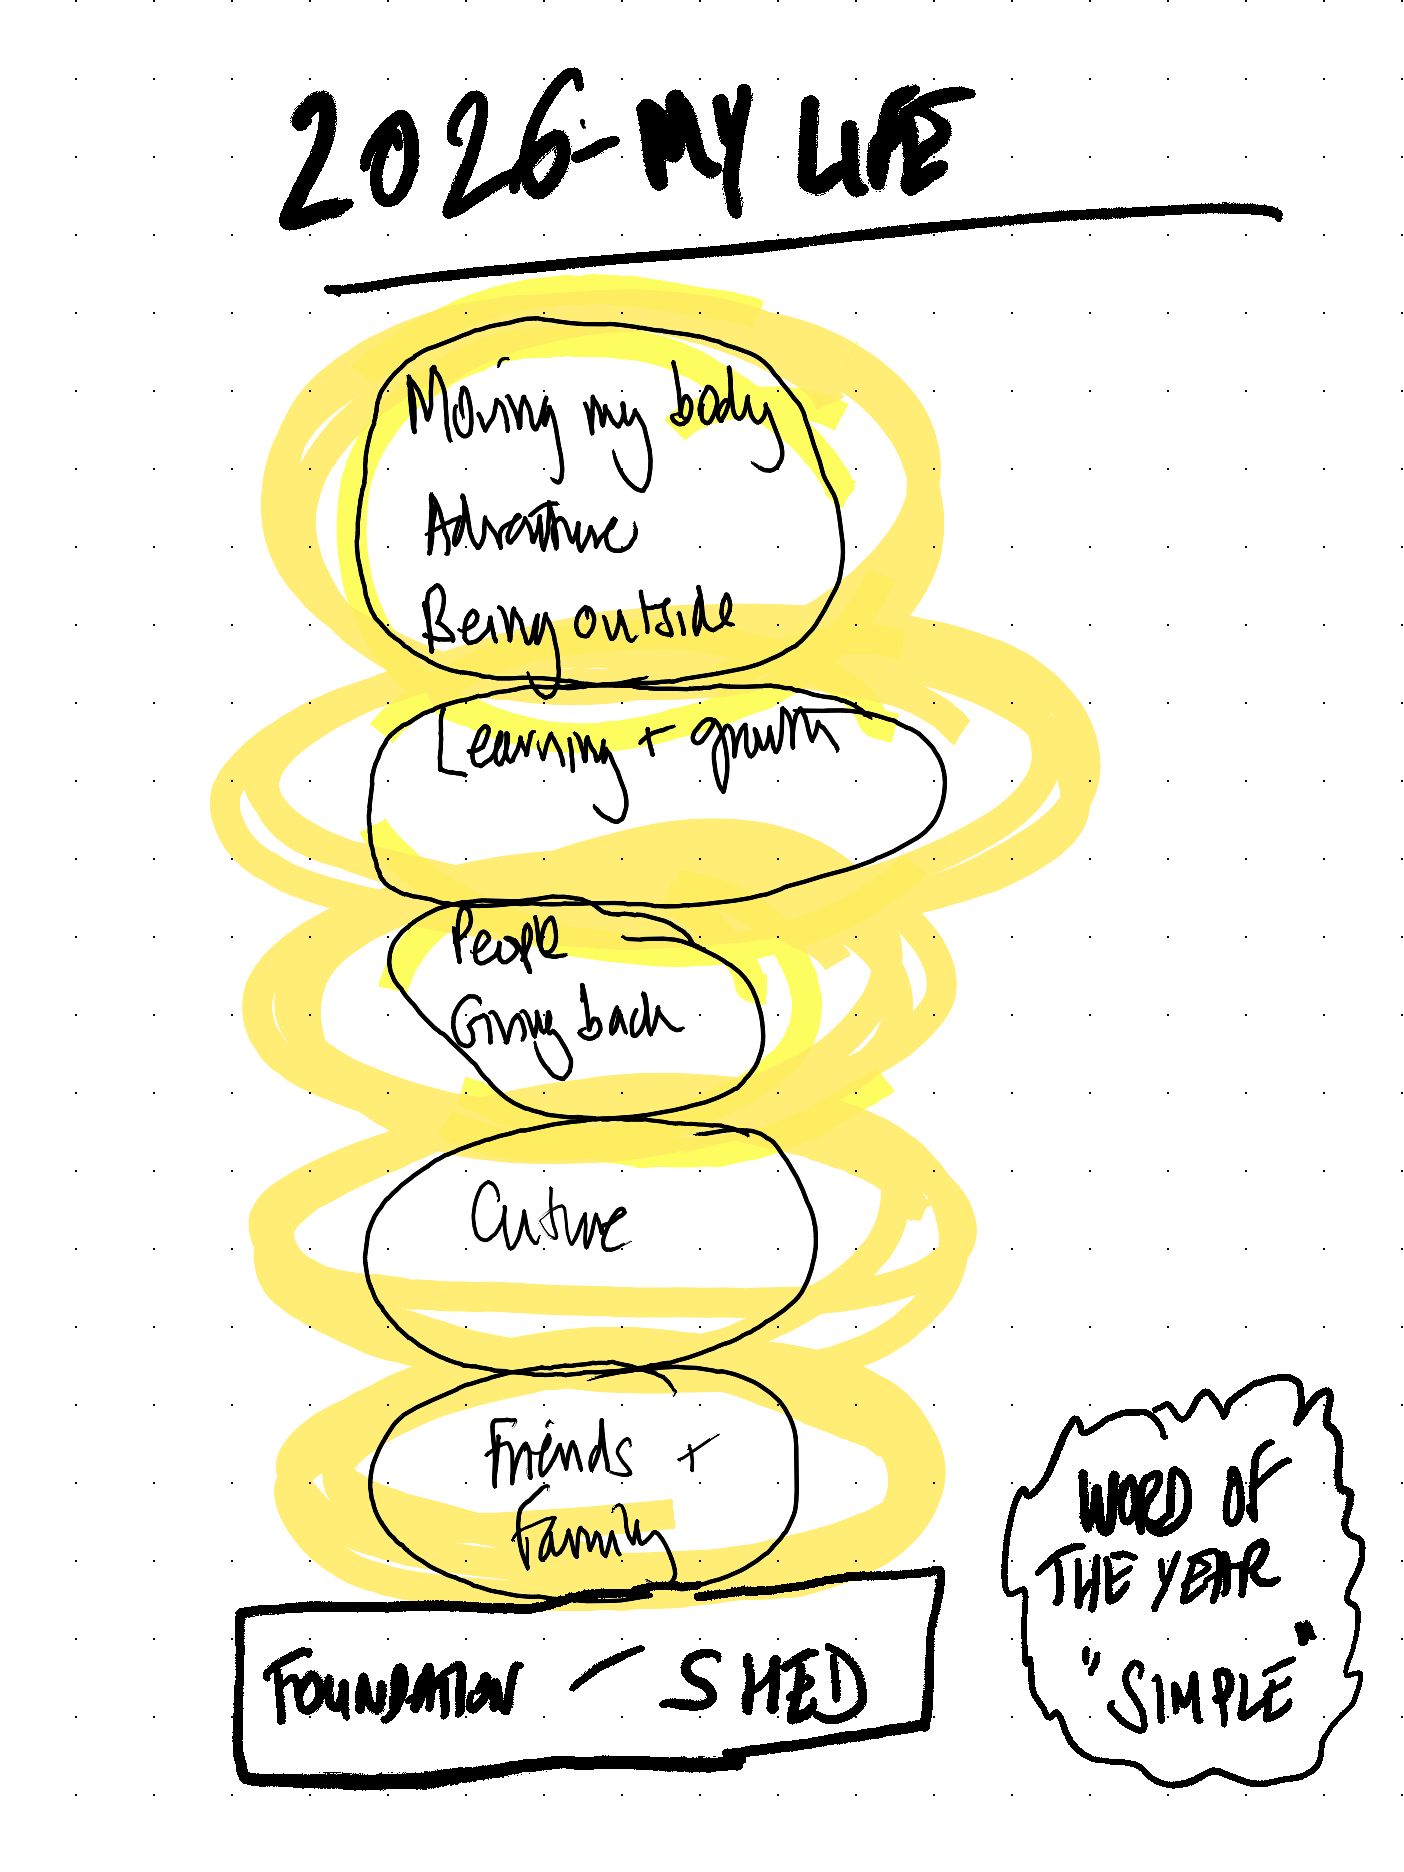 2026 - MY LIFE
Moving my body
Adventure
Being outside
Learning + growth
People
Giving back
Culture
Friends +
Family
FOUNDATION - SHED
WORD OF
THE YEAR
"SIMPLE"